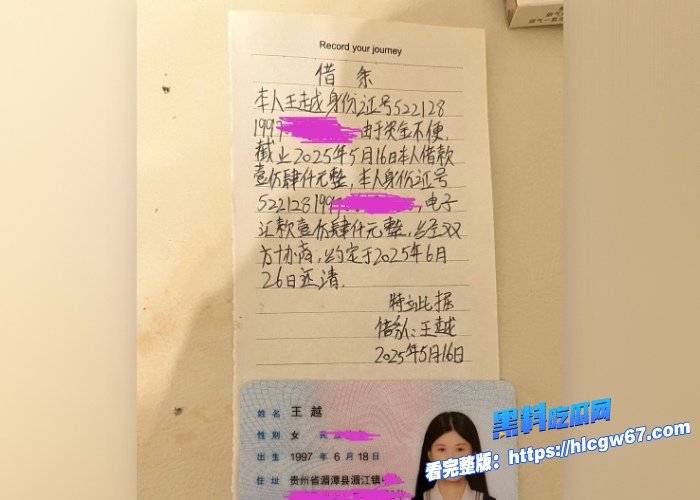 Record your journey
借 条
本人王越身份证号522128
199 由于资金不便,
截止2025年5月16日本人借款
壹仟肆仟元整,本人身份证号
522128199 ,电子
汇款壹仟肆仟元整,经双
方协商,约定于2025年6月
26日还清.
特立此据
借款人:王越
2025年5月16日
姓 名 王 越
性 别 女 民
出 生 1997 年 6 月 18 日
住 址 贵州省湄潭县湄江镇
黑料吃瓜网
看完整版:https://hlcgw67.com